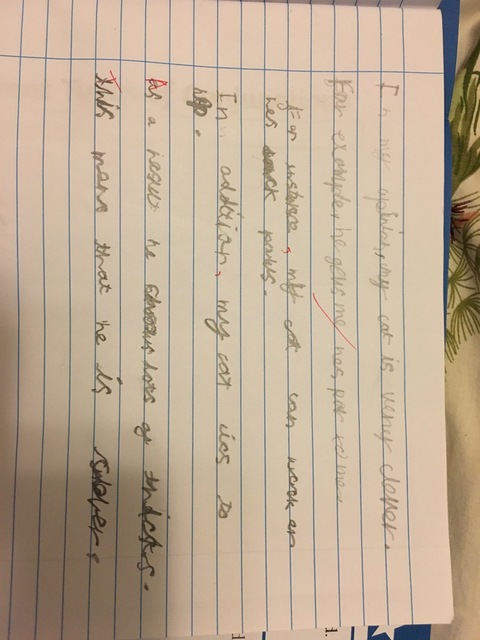 In my opinion, my cat is very clever.
For example, he gives me hes par to me
For instance, my cat can work on
hes back paws.
In addition, my cat ies to
hop.
As a result he lots of thicks.
This mans that he is